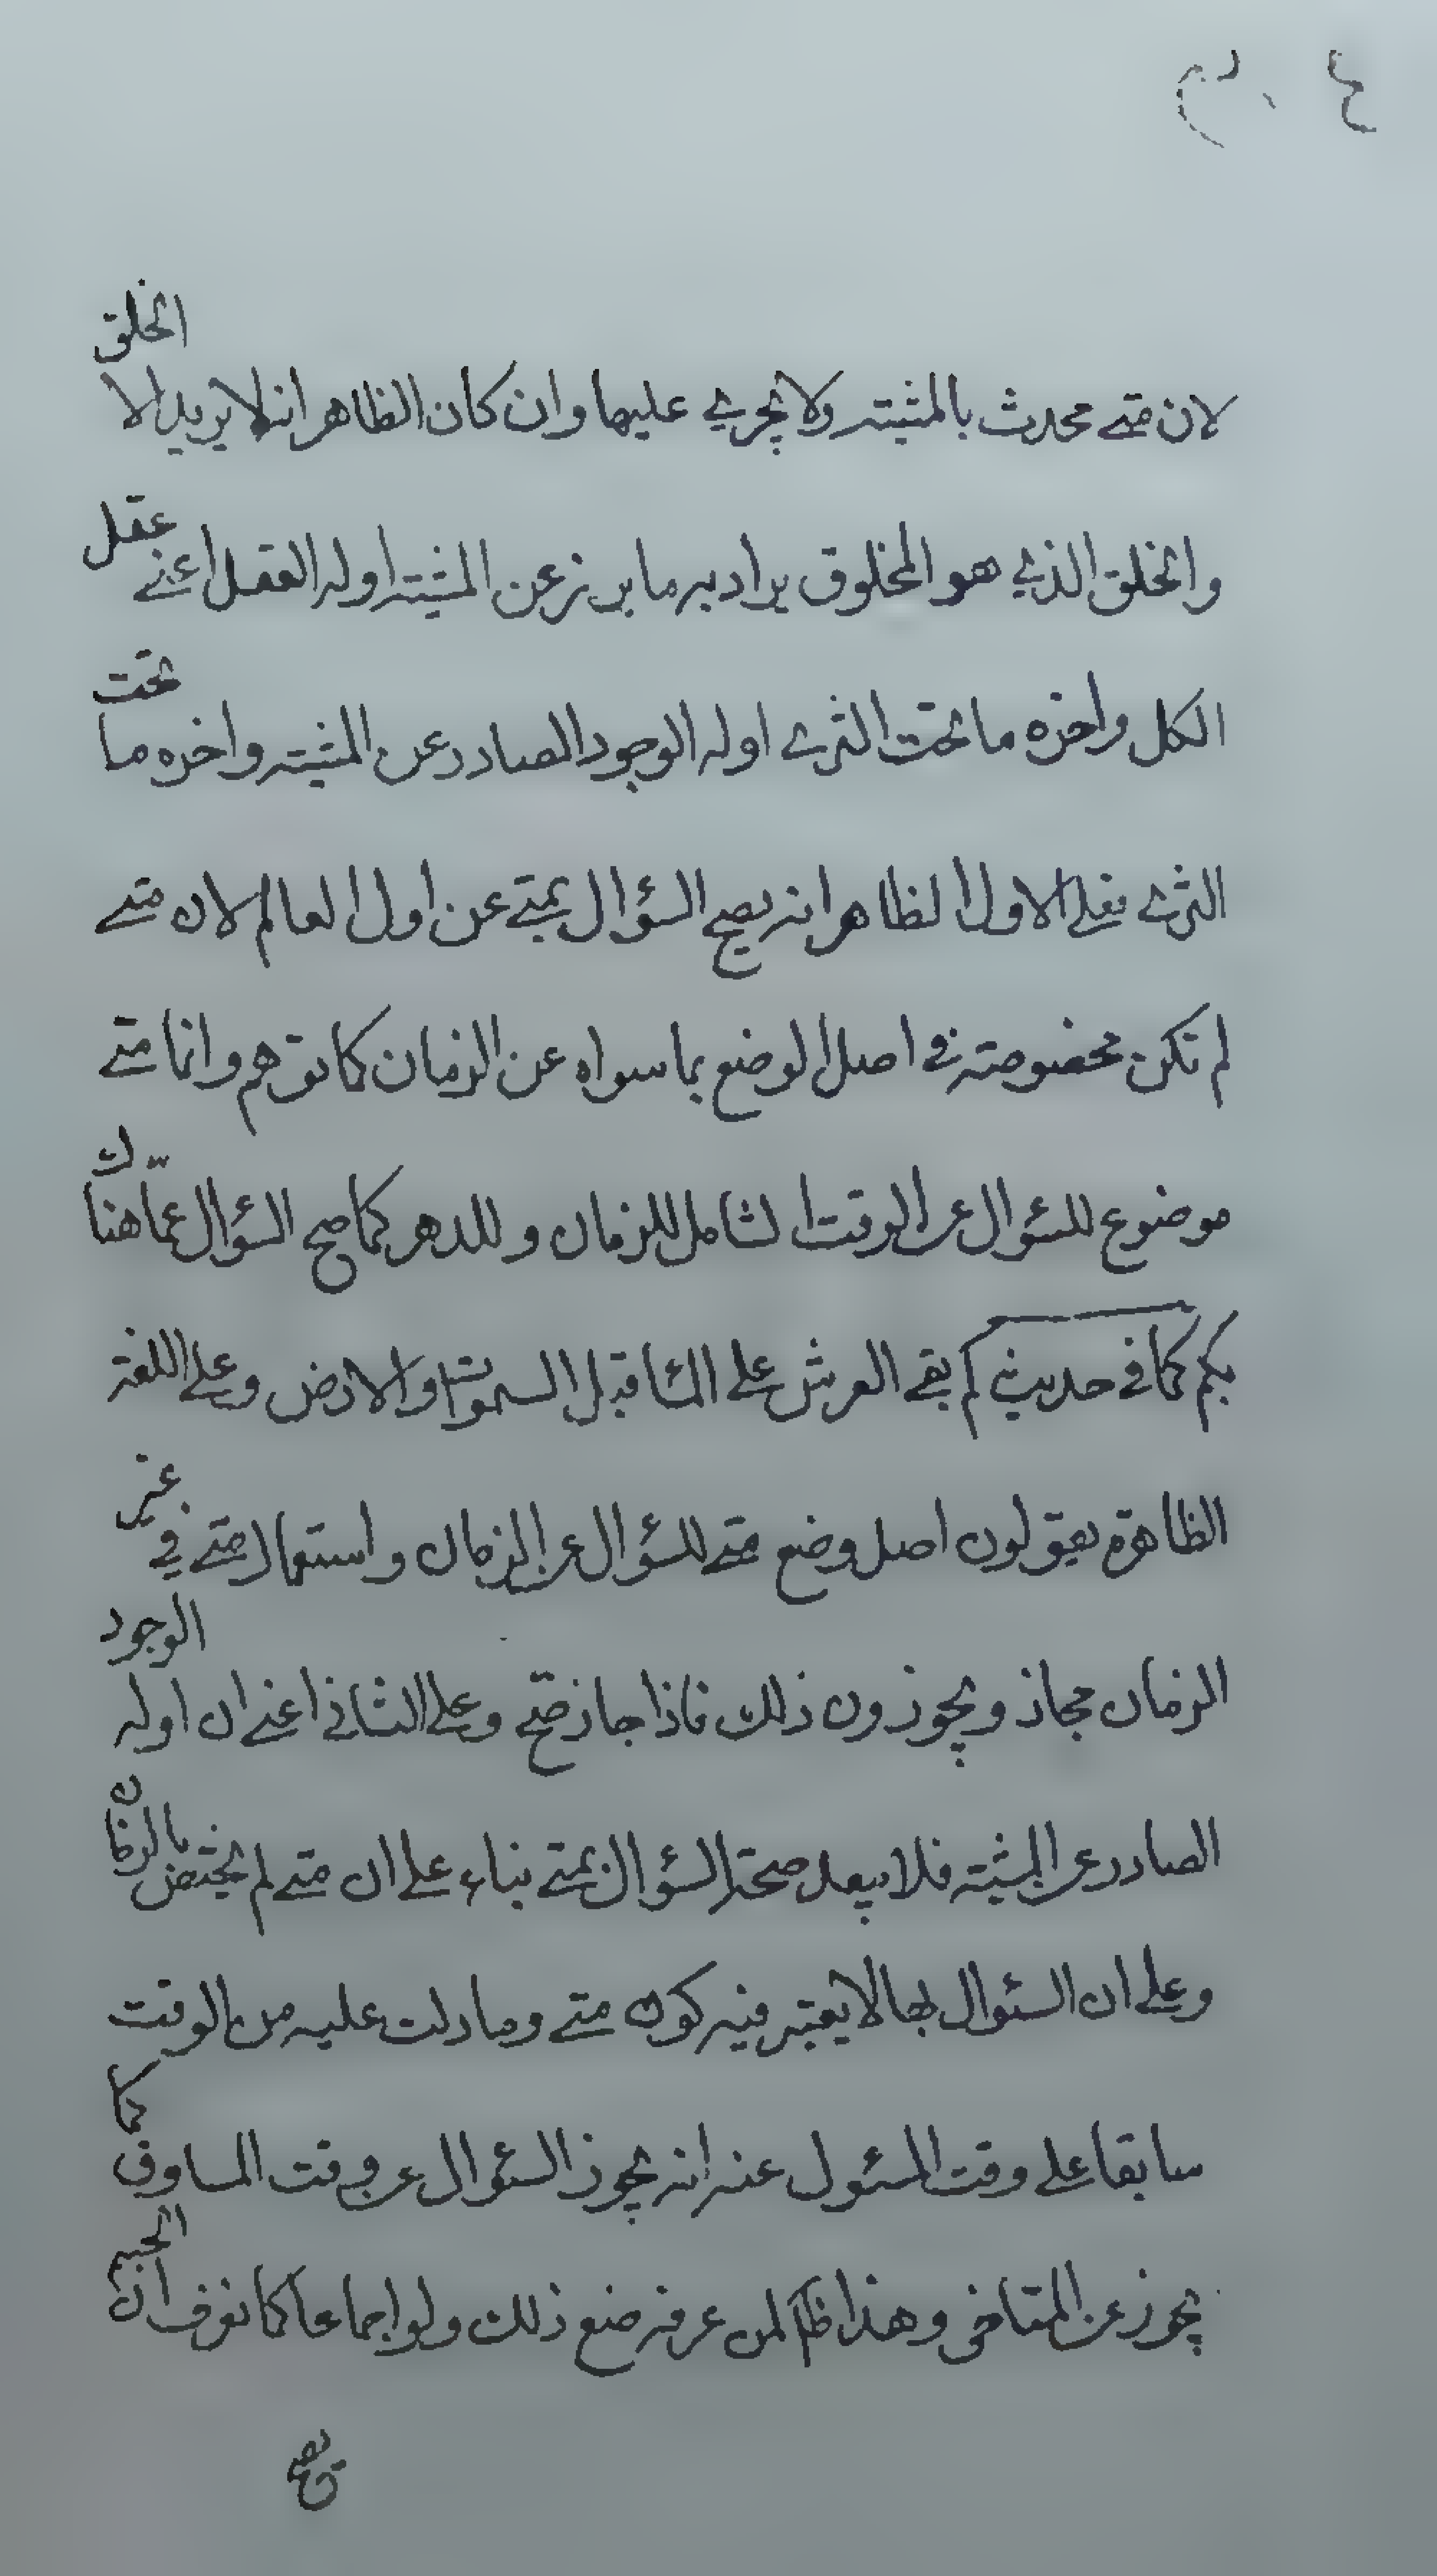 لان متى محدث بالمشية ولا يجري عليها وان كان الظاهر انه لا يريد الا الخلق
والخلق الذي هو المخلوق يراد به ما برز عن المشية اوله العقل اعني عقل
الكل واخره ما تحت الثرى اوله الوجود الصادر عن المشية واخره ما تحت
الثرى فعلى الاول الظاهر انه يصح السؤال بمتى عن اول العالم لان متى
لم تكن مخصوصة في اصل الوضع بما سواه عن الزمان كما توهم وانما متى
موضوع للسؤال عن الوقت الشامل للزمان وللدهر كما صح السؤال عما هناك
بكم كما في حديث كم بقي العرش على الماء قبل السموات والارض وعلى اللغة
الظاهرة يقولون اصل وضع متى للسؤال عن الزمان واستعمال متى في غير
الزمان مجاز ويجوزون ذلك فاذا جاز صح وعلى الثاني اعني ان اوله الوجود
الصادر عن المشية فلا يبعد صحة السؤال بمتى بناء على ان متى لم يختص بالزمان
وعلى ان السئوال بها لا يعتبر فيه كون متى وما دلت عليه من الوقت
سابقا على وقت المسئول عنه انه يجوز السئوال عن وقت المساوق كما
يجوز عن المتاخر وهذا ظاهر لمن عرف وضع ذلك ولو اجماعا كما نعرف ان الجسم
يصح